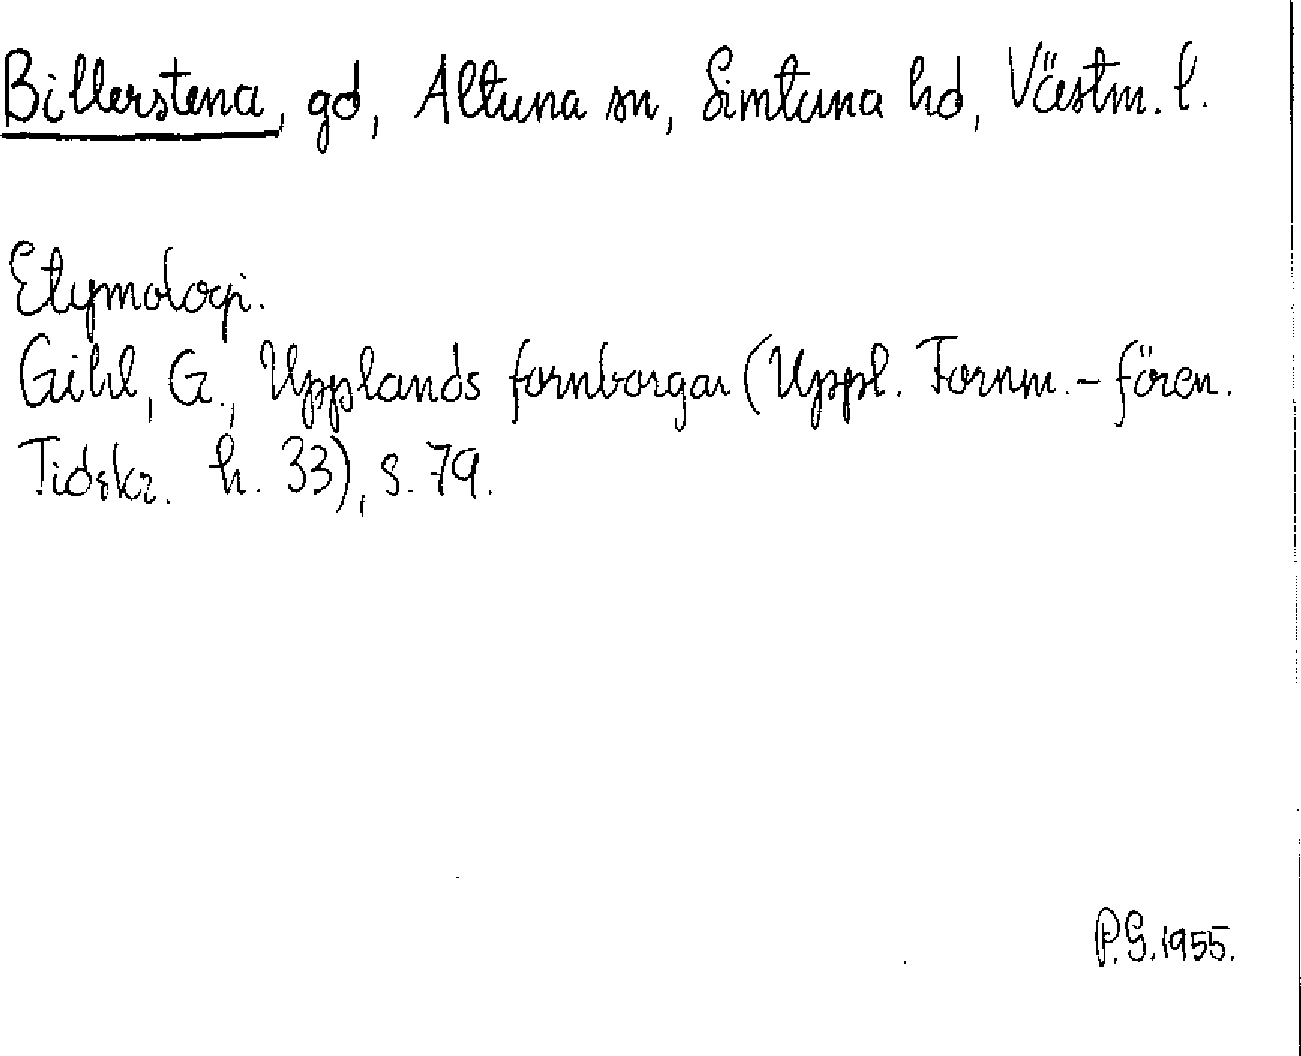 Billerstena, gd, Altuna sn, Simtuna hd, Västm. l.
Etymologi.
Gihl, G., Upplands fornborgar (Uppl. Fornm.-fören.
Tidskr. h. 33), s. 79.
P.G. 1955.